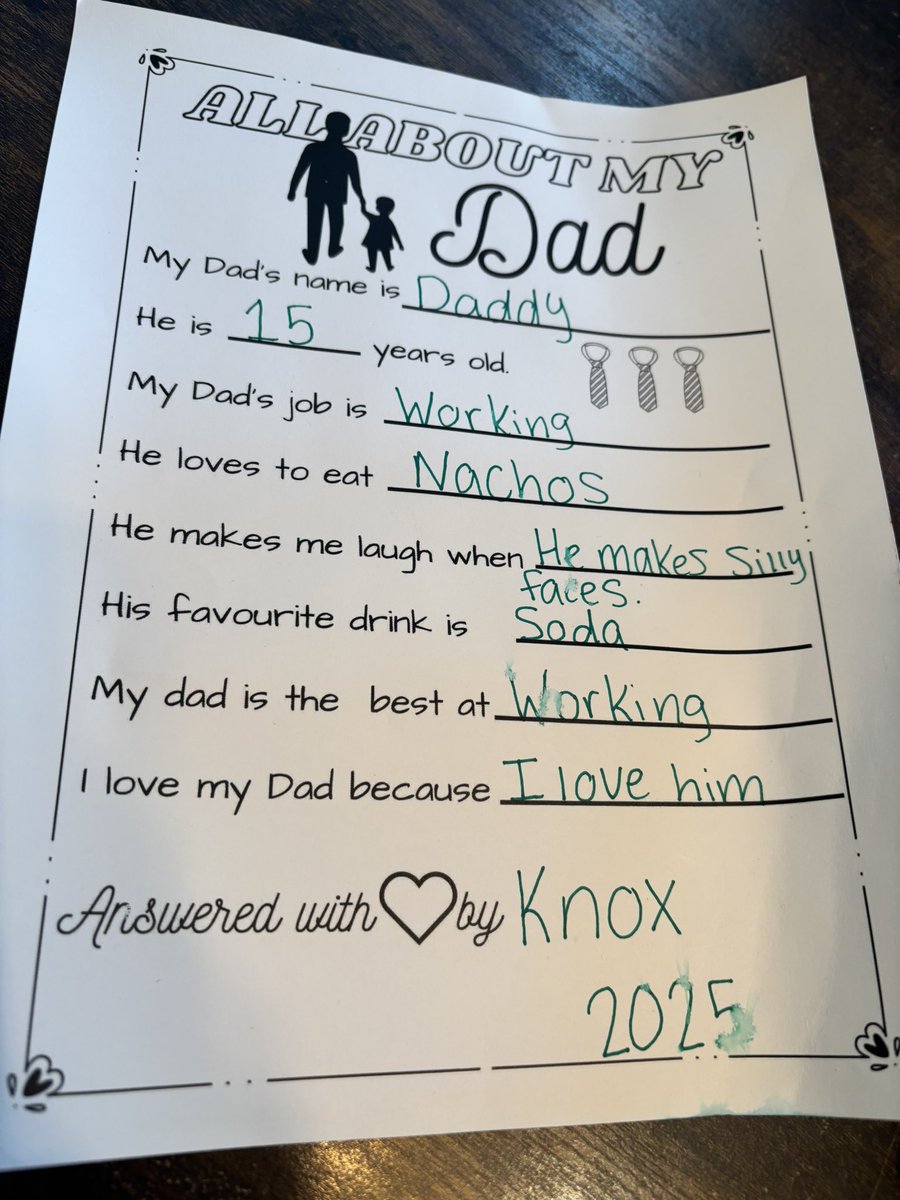 ALL ABOUT MY
Dad
My Dad's name is Daddy
He is 15 years old.
My Dad's job is Working
He loves to eat Nachos
He makes me laugh when He makes Silly
faces.
His favourite drink is Soda
My dad is the best at Working
I love my Dad because I love him
Answered with by Knox
2025